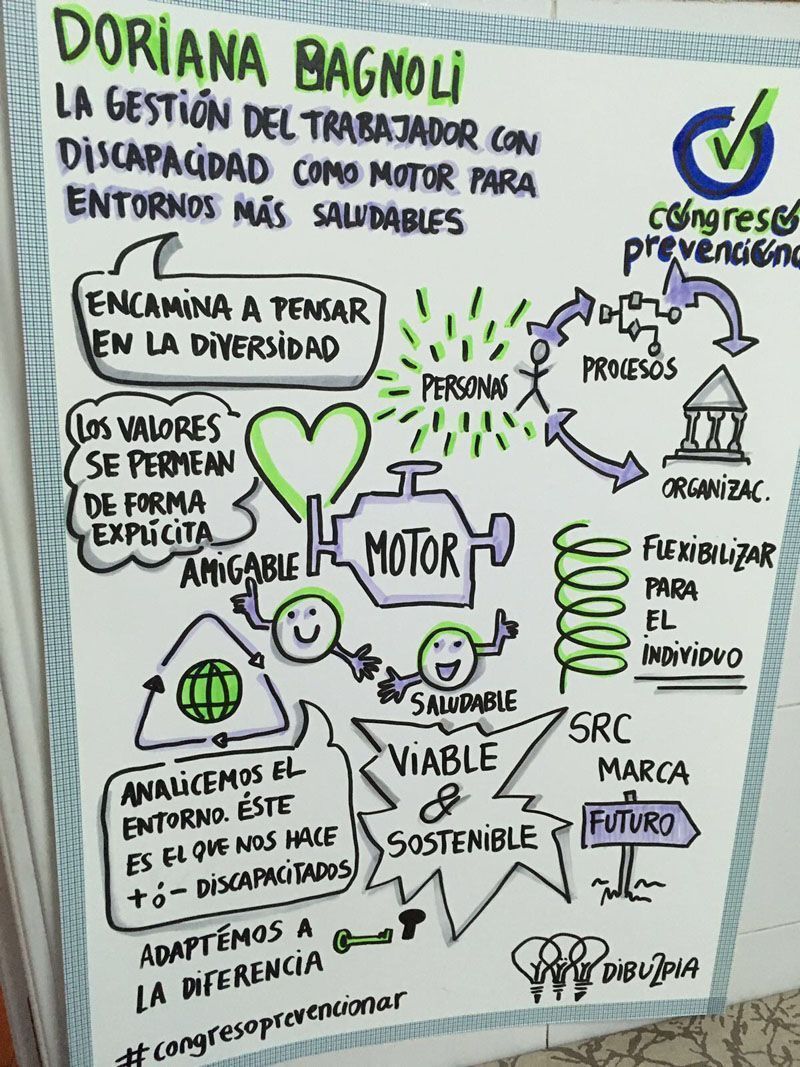 DORIANA BAGNOLI
LA GESTIÓN DEL TRABAJADOR CON
DISCAPACIDAD COMO MOTOR PARA
ENTORNOS MÁS SALUDABLES
congreso
prevenciona
ENCAMINA A PENSAR
EN LA DIVERSIDAD
PERSONAS
PROCESOS
ORGANIZAC.
LOS VALORES
SE PERMEAN
DE FORMA
EXPLÍCITA
MOTOR
AMIGABLE
SALUDABLE
FLEXIBILIZAR
PARA
EL
INDIVIDUO
ANALICEMOS EL
ENTORNO. ÉSTE
ES EL QUE NOS HACE
+ Ó - DISCAPACITADOS
VIABLE
&
SOSTENIBLE
SRC
MARCA
FUTURO
ADAPTÉMOS A
LA DIFERENCIA
#congresoprevencionar
DIBU2PIA